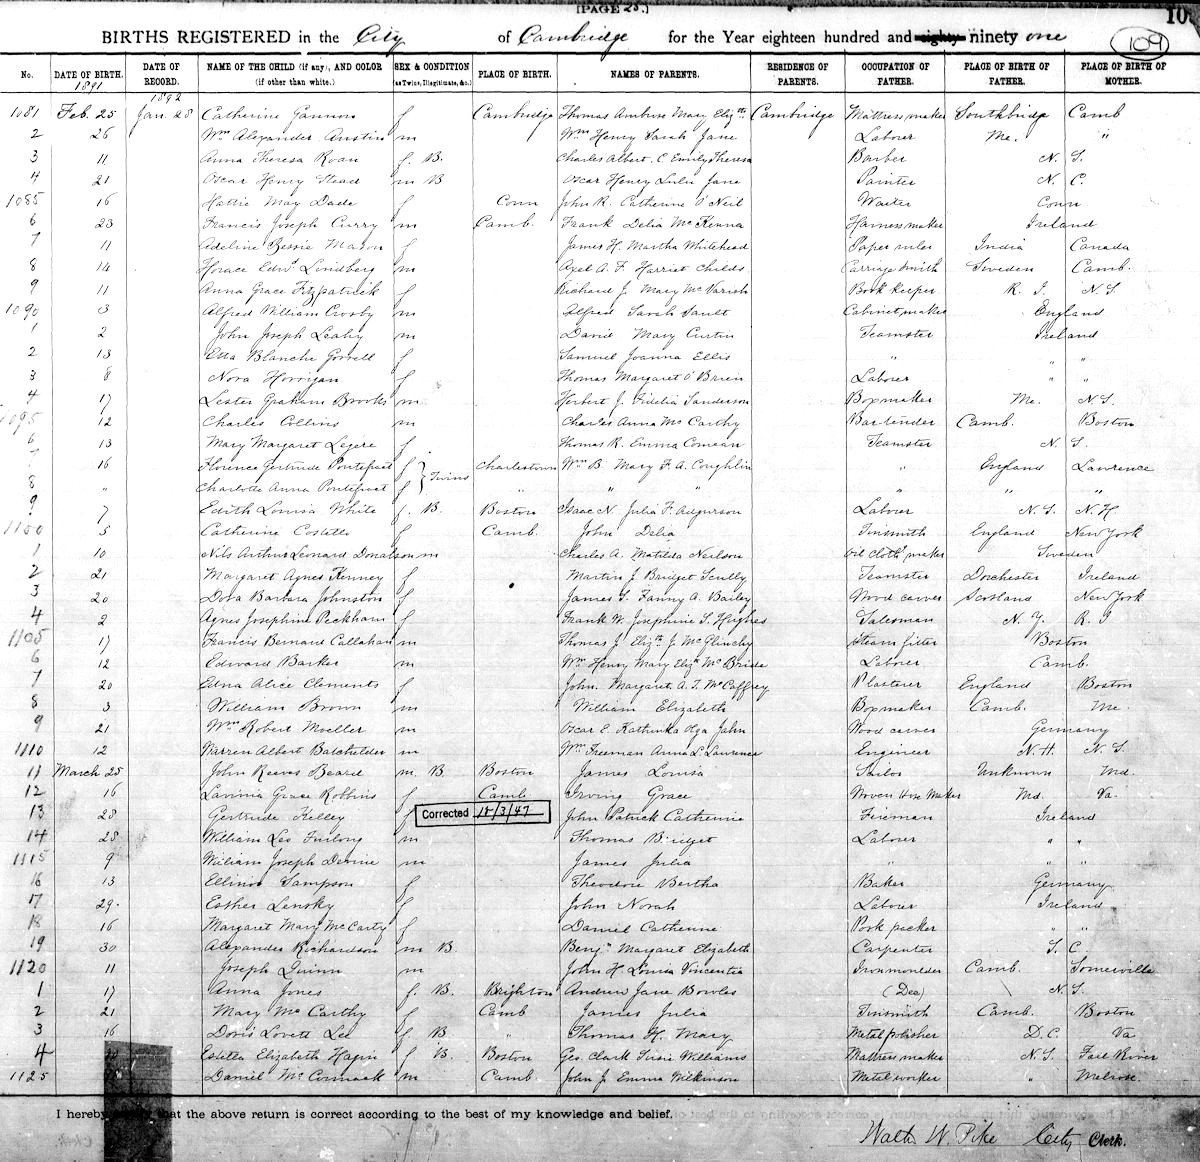 [PAGE 25.]
10
BIRTHS REGISTERED in the City of Cambridge for the Year eighteen hundred and eighty ninety one 109
No. DATE OF BIRTH. DATE OF RECORD. NAME OF THE CHILD (if any), AND COLOR (if other than white.) SEX & CONDITION (as Twins, Illegitimate, &c.) PLACE OF BIRTH. NAMES OF PARENTS. RESIDENCE OF PARENTS. OCCUPATION OF FATHER. PLACE OF BIRTH OF FATHER. PLACE OF BIRTH OF MOTHER.
1891 1892
1081 Feb. 25 Jan. 28 Catherine Gannon f Cambridge Thomas Ambrose Mary Elizth Cambridge Mattress maker Southbridge Camb
2 26 Wm Alexander Austin m Wm Henry Sarah Jane Laborer Me. "
3 11 Anna Theresa Roan f. B. Charles Albert. C Emily Theresa Barber N. S.
4 21 Oscar Henry Stead m B Oscar Henry Lulu Jane Painter N. C.
1085 16 Hattie May Dade f Conn John R. Catherine O'Neil Waiter Conn
6 23 Francis Joseph Curry m Camb. Frank Delia McKenna Harness maker Ireland
7 11 Adeline Bessie Mason f James H. Martha Whitehead Paper ruler India Canada
8 14 Horace Edwd Lindberg m Axel A. F. Harriet Childs Carriage smith Sweden Camb.
9 11 Anna Grace Fitzpatrick f Richard J. Mary McVarish Book keeper R. I. N. S.
1090 3 Alfred William Crosby m Alfred Sarah Sault Cabinet maker England
1 2 John Joseph Leahy m Daniel Mary Curtin Teamster Ireland
2 13 Etta Blanche Gorrell f Samuel Joanna Ellis " " "
3 8 Nora Horrigan f Thomas Margaret O'Brien Laborer " "
4 17 Lester Graham Brooks m Herbert J. Fidelia Sanderson Boxmaker Me. N. S.
1095 12 Charles Collins m Charles Anna McCarthy Bartender Camb. Boston
6 13 Mary Margaret Legere f Thomas R. Emma Comeau Teamster N. S.
7 16 Florence Gertrude Pontefract f } Twins Charlestown Wm B. Mary F. A. Coughlin " England Lawrence
8 " Charlotte Anna Pontefract f " " " " " "
9 7 Edith Louisa White f. B. Boston Isaac N. Julia F. Adgurson Laborer N. S. N. H
1100 5 Catherine Costello f Camb. John Delia Tinsmith England New York
1 10 Nils Arthur Leonard Donaldson m Charles A. Matilda Neilson Oil cloth maker Sweden
2 21 Margaret Agnes Kenney f Martin J. Bridget Scully Teamster Dorchester Ireland
3 20 Dora Barbara Johnston f James S. Fanny A. Bailey Wood carver Scotland New York
4 2 Agnes Josephine Peckham f Frank W. Josephine S. Hughes Salesman N. Y. R. I
1105 17 Francis Bernard Callahan m Thomas J. Elizth J. McGlinchy Steam fitter Boston
6 12 Edward Barker m Wm Henry Mary Elizth McBride Laborer Camb.
7 20 Edna Alice Clements f John. Margaret A. T. McCaffrey Plasterer England Boston
8 3 William Brown m William Elizabeth Boxmaker Camb. Me.
9 21 Wm Robert Moeller m Oscar E. Kathinka Olga Jahn Wood carver Germany
1110 12 Warren Albert Batchelder m Wm Freeman Anna L. Lawrence Engineer N. H. N. S.
11 March 25 John Reeves Beard m. B. Boston James Louisa Sailor Unknown Md.
12 16 Lavinia Grace Robbins f Camb. Irving Grace Woven Hose Maker Md. Va.
13 28 Gertrude Kelley f Corrected 12/3/47 John Patrick Catherine Fireman Ireland
14 28 William Leo Furlong m Thomas Bridget Laborer " "
1115 9 William Joseph Devine m James Julia " " "
16 13 Ellinor Sampson f Theodore Bertha Baker Germany
17 29. Esther Lensky f John Norah Laborer Ireland
18 16 Margaret Mary McCarty f Daniel Catherine Pork packer " "
19 30 Alexander Richardson m B. Benjn Margaret Elizabeth Carpenter S. C.
1120 11 Joseph Quinn m John H. Louisa Vincentia Ironmoulder Camb. Somerville
1 17 Anna Jones f. B. Brighton Andrew Jane Bowles (Dea) N. S.
2 21 Mary McCarthy f Camb James Julia Tinsmith Camb. Boston
3 16 Doris Lovett Lee f B " Thomas H. Mary Metal polisher D. C. Va
4 Estella Elizabeth Hagin f B. Boston Geo. Clark Susie Williams Mattress maker N. S. Fall River
1125 Daniel McCormack m Camb. John J. Emma Wilkinson Metal worker " Melrose
I hereby that the above return is correct according to the best of my knowledge and belief.
Walter W. Pike City Clerk.